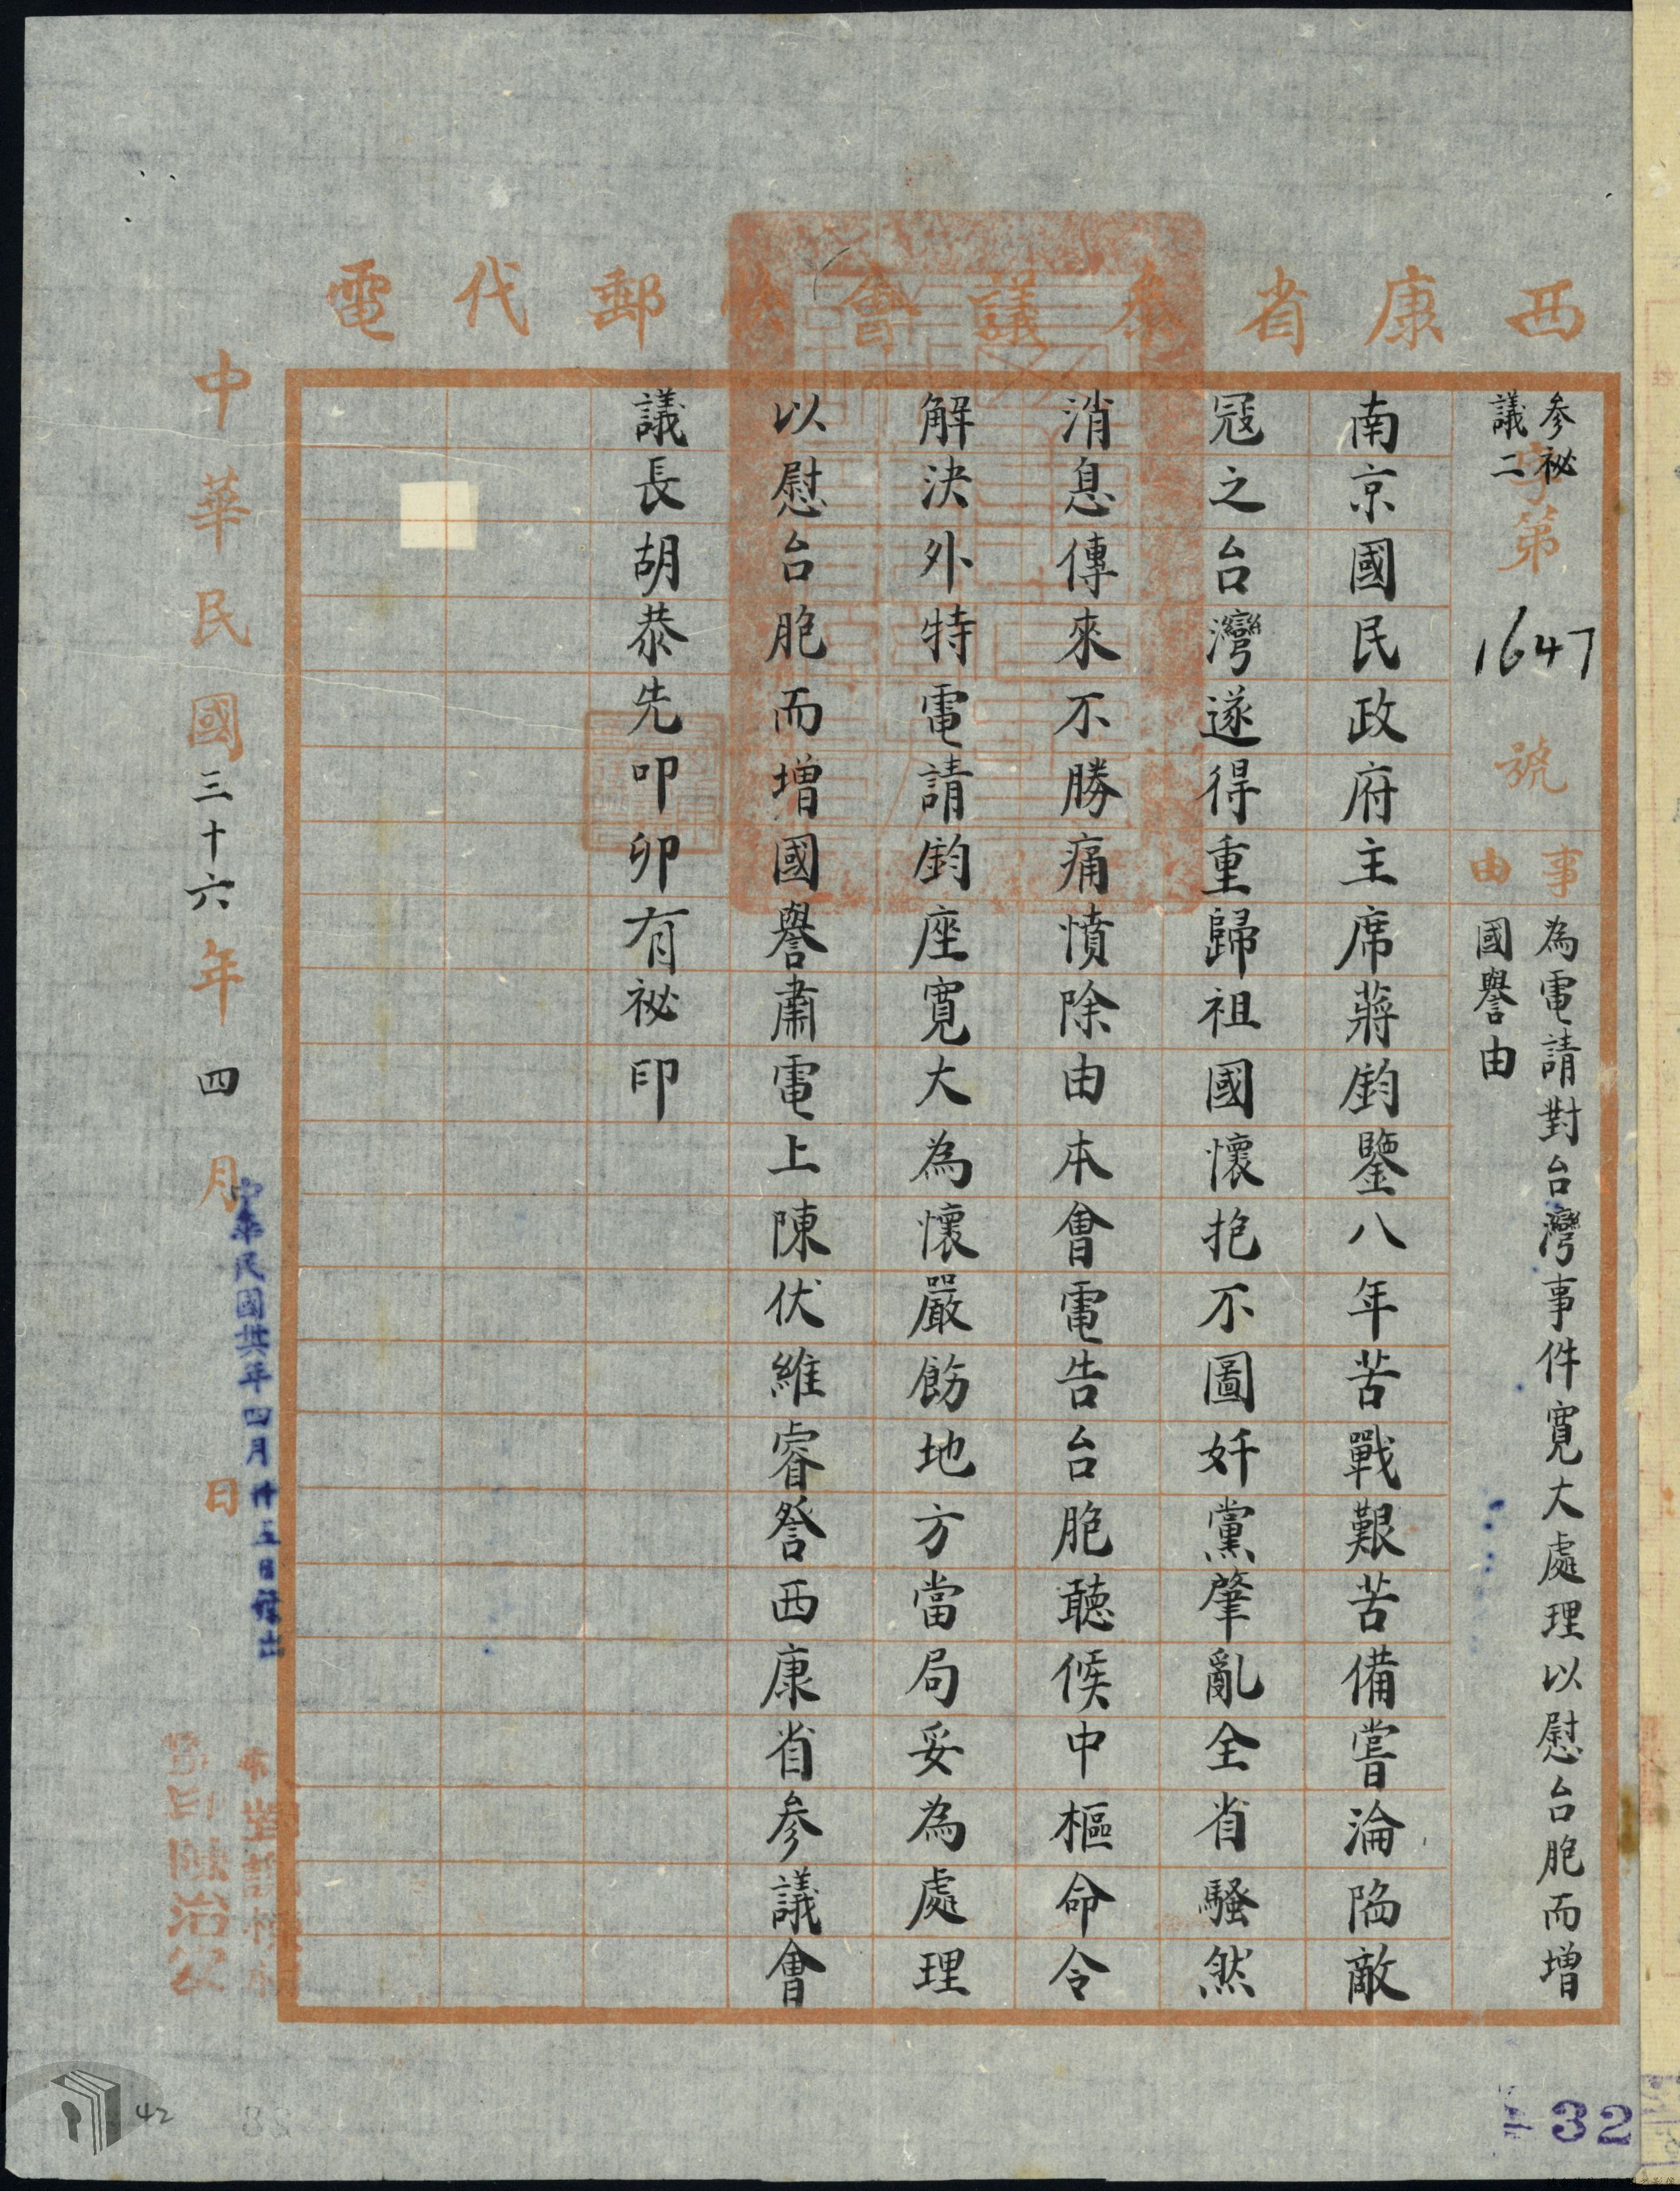 西康省參議會快郵代電
參秘
議二
字第1647號
事由
為電請對台灣事件寬大處理以慰台胞而增
國譽由
南京國民政府主席蔣鈞鑒八年苦戰艱苦備嘗淪陷敵
寇之台灣遂得重歸祖國懷抱不圖奸黨肇亂全省騷然
消息傳來不勝痛憤除由本會電告台胞聽候中樞命令
解決外特電請鈞座寬大為懷嚴飭地方當局妥為處理
以慰台胞而增國譽肅電上陳伏維睿詧西康省參議會
議長胡恭先叩卯有祕印
中華民國三十六年四月日
中華民國卅六年四月廿五日發出
監印陳治公
32
42